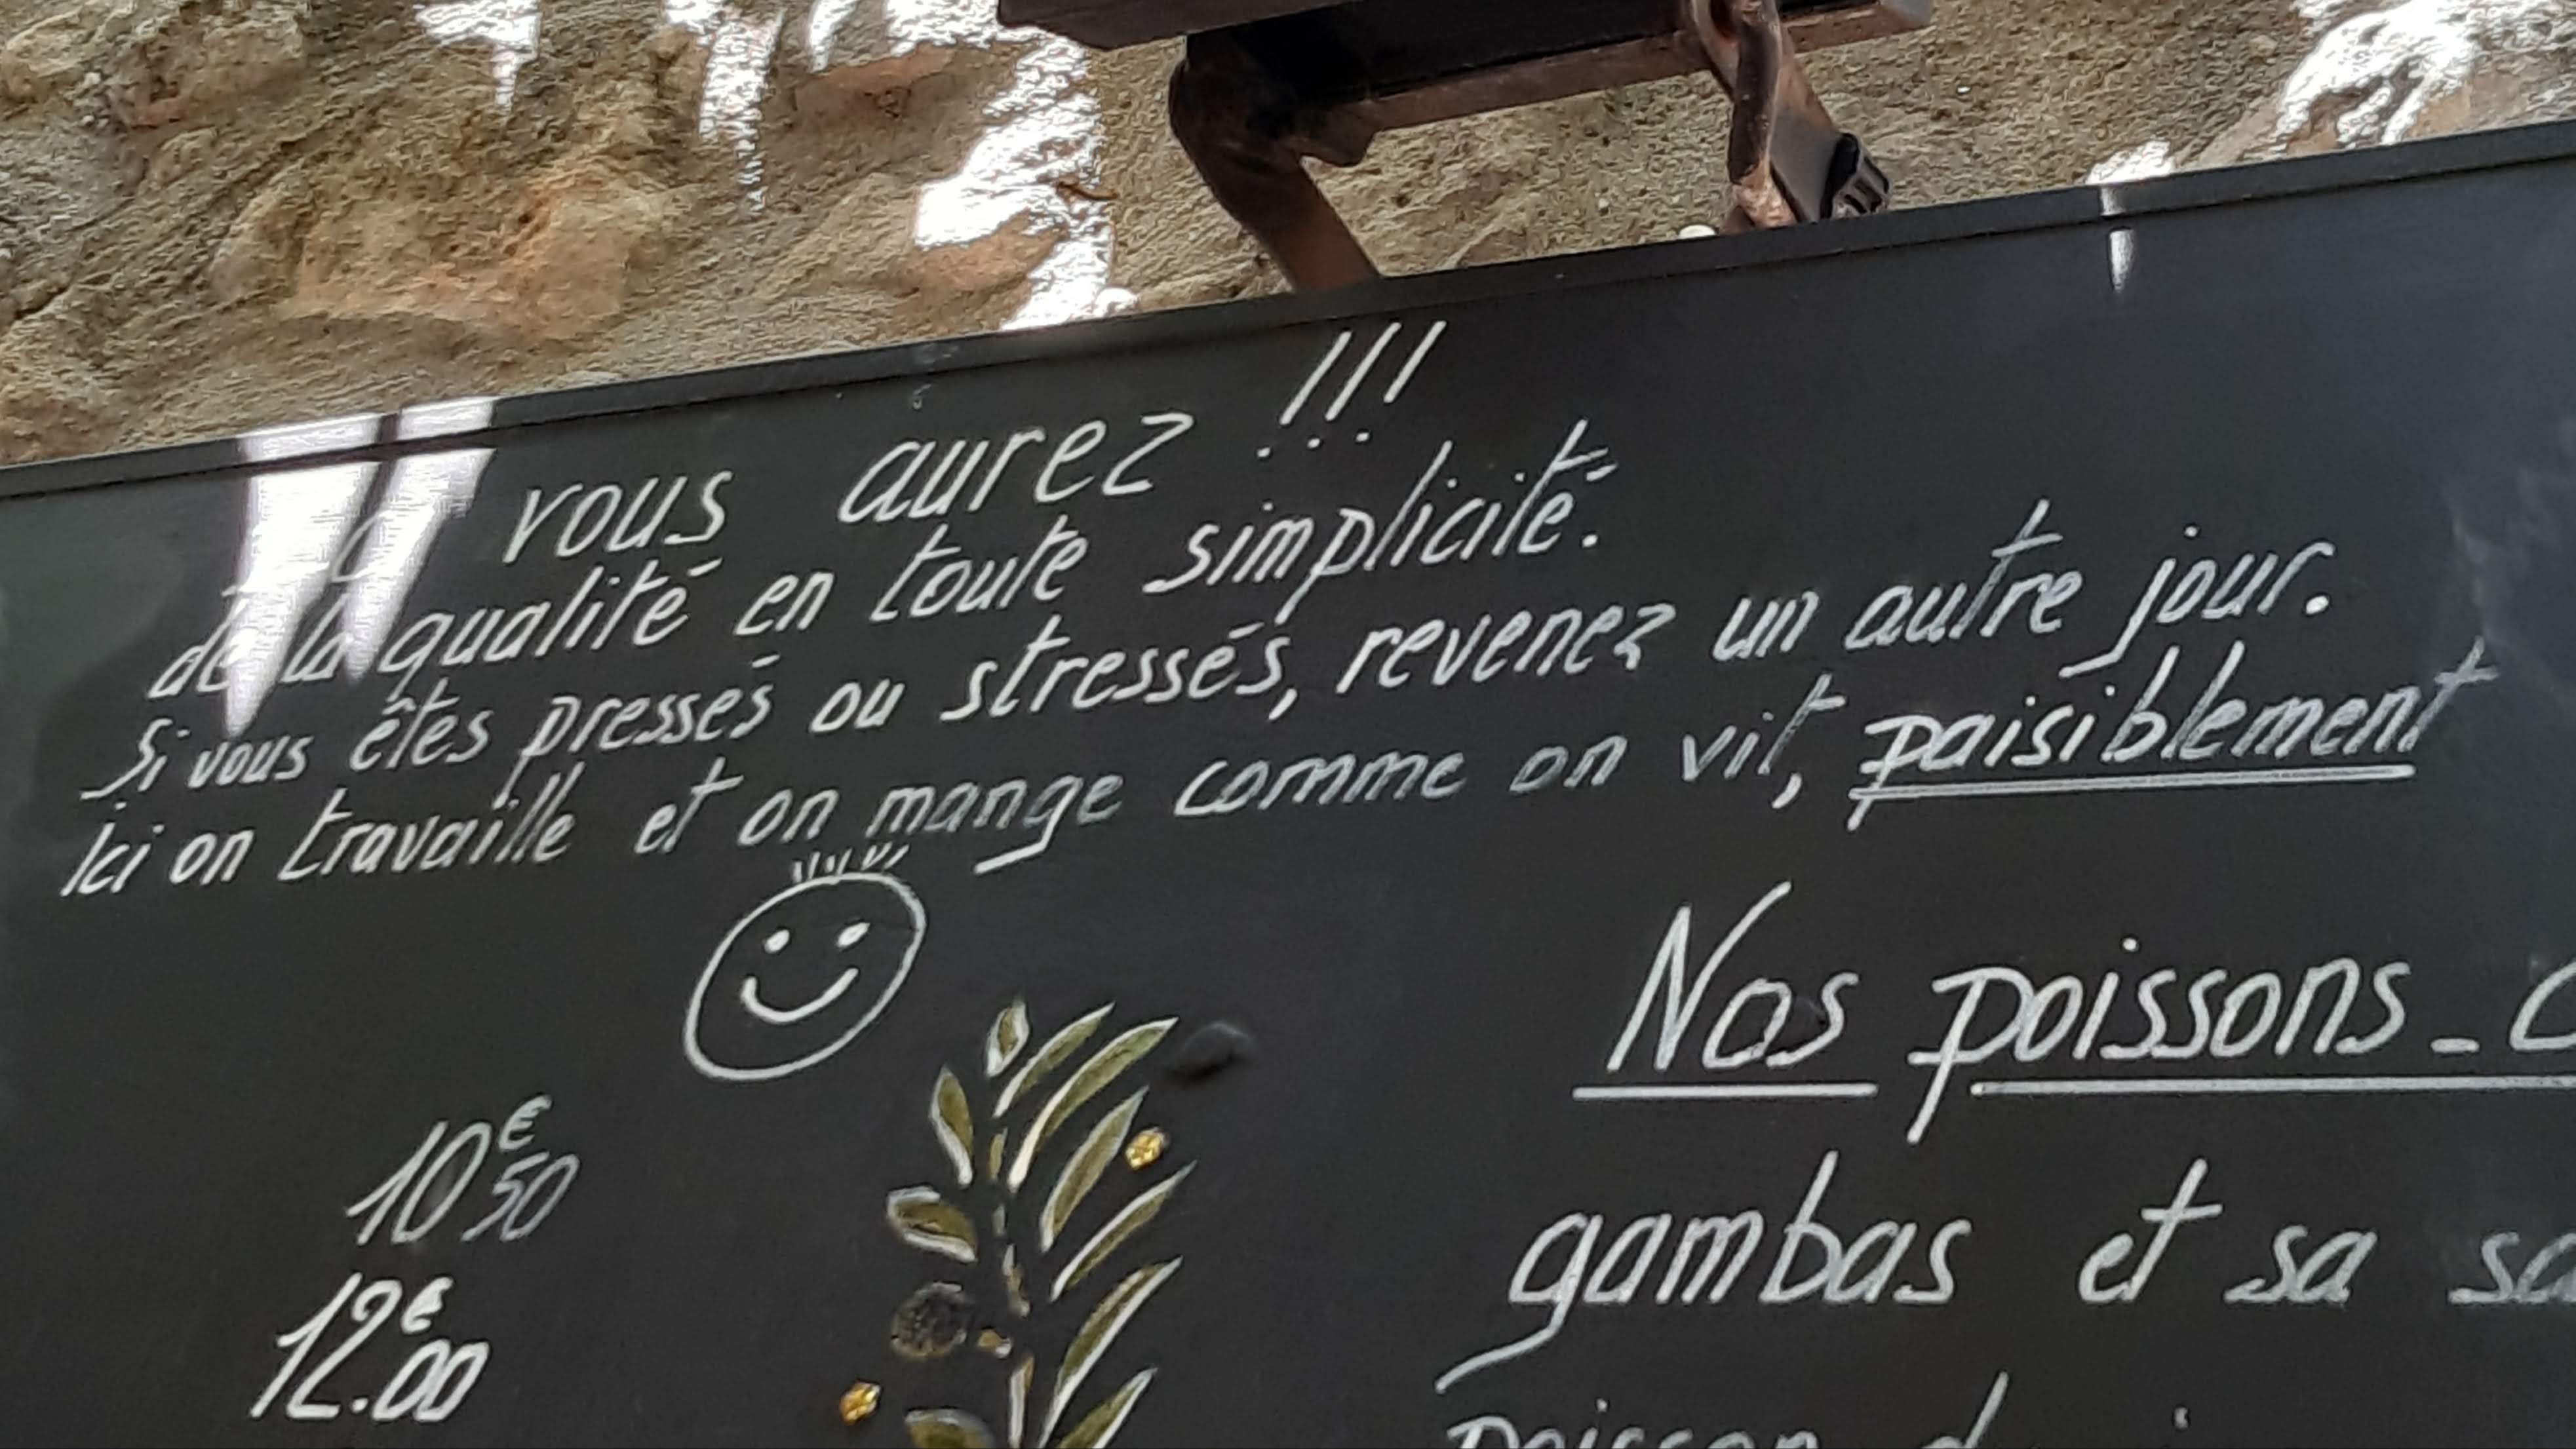 vous aurez !!!
de la qualité en toute simplicité.
Si vous êtes pressés ou stressés, revenez un autre jour.
Ici on travaille et on mange comme on vit, paisiblement
Nos poissons -
10€50
gambas et sa
12€.00
poisson